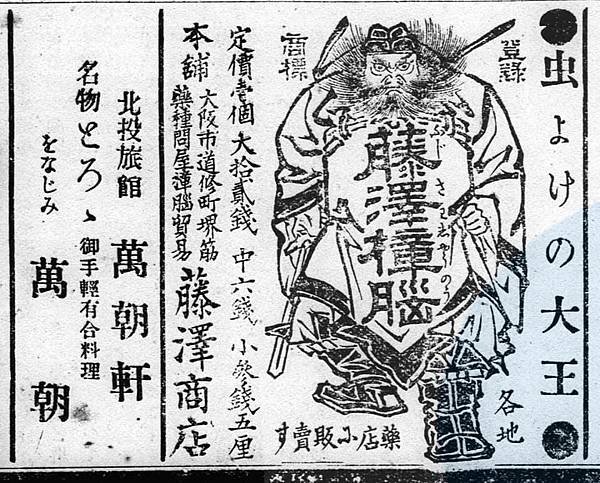 ●虫よけの大王●
登録
商標
藤澤樟腦
ふじさわしやうのう
各地
藥店に販賣す
定價壹個 大拾貳錢 中六錢 小參錢五厘
本舗
大阪市道修町堺筋
藥種問屋樟腦貿易
藤澤商店
北投旅館 萬朝軒
名物とろゝ 御手輕有合料理
をなじみ 萬朝